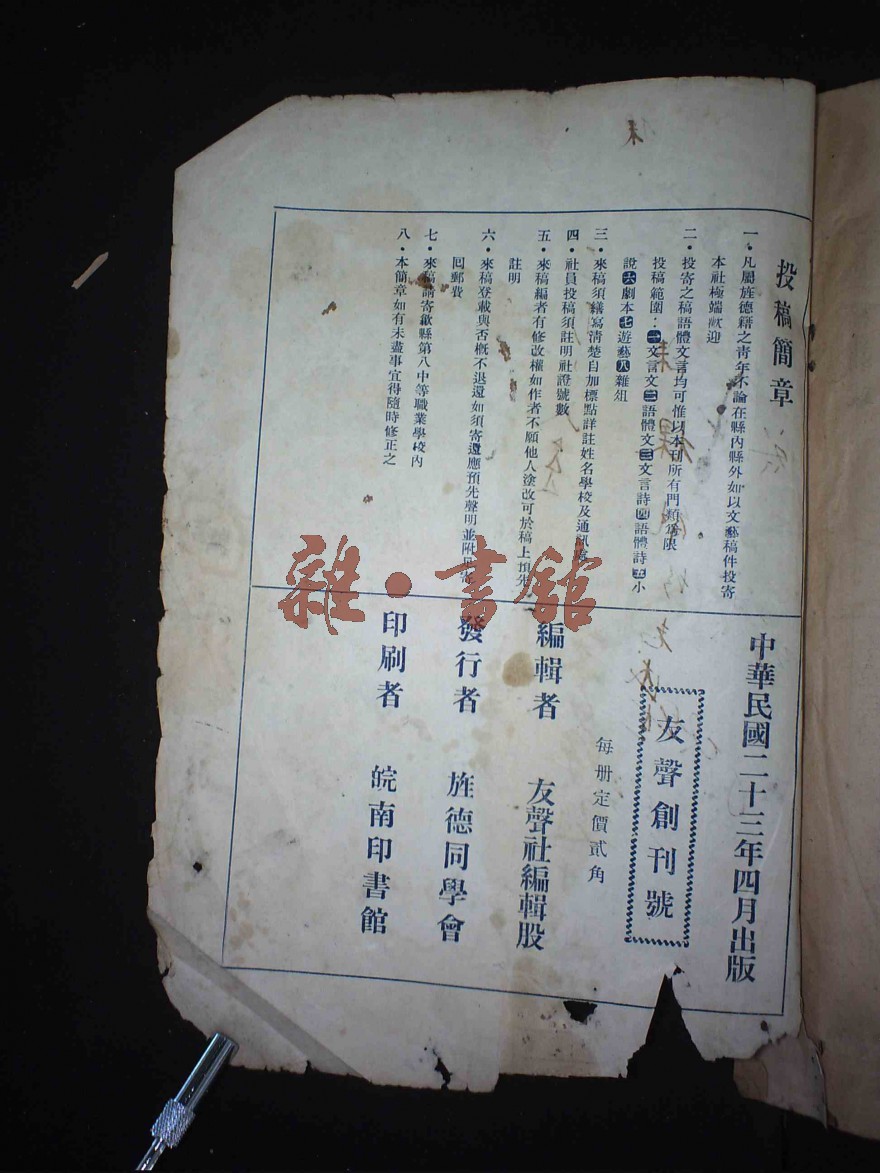 投稿簡章
一•凡屬旌德籍之青年不論在縣內縣外如以文藝稿件投寄
本社極端歡迎
二•投寄之稿語體文言均可惟以本刊所有門類爲限
投稿範圍：一文言文二語體文三文言詩四語體詩五小
說六劇本七遊藝八雜俎
三•來稿須繕寫清楚自加標點詳註姓名學校及通訊處
四•社員投稿須註明社證號數
五•來稿編者有修改權如作者不願他人塗改可於稿上預先
註明
六•來稿登載與否概不退還如須寄還應預先聲明並附足寄
囘郵費
七•來稿請寄歙縣第八中等職業學校內
八•本簡章如有未盡事宜得隨時修正之
中華民國二十三年四月出版
友聲創刊號
每册定價貳角
編輯者 友聲社編輯股
發行者 旌德同學會
印刷者 皖南印書館
雜•書館